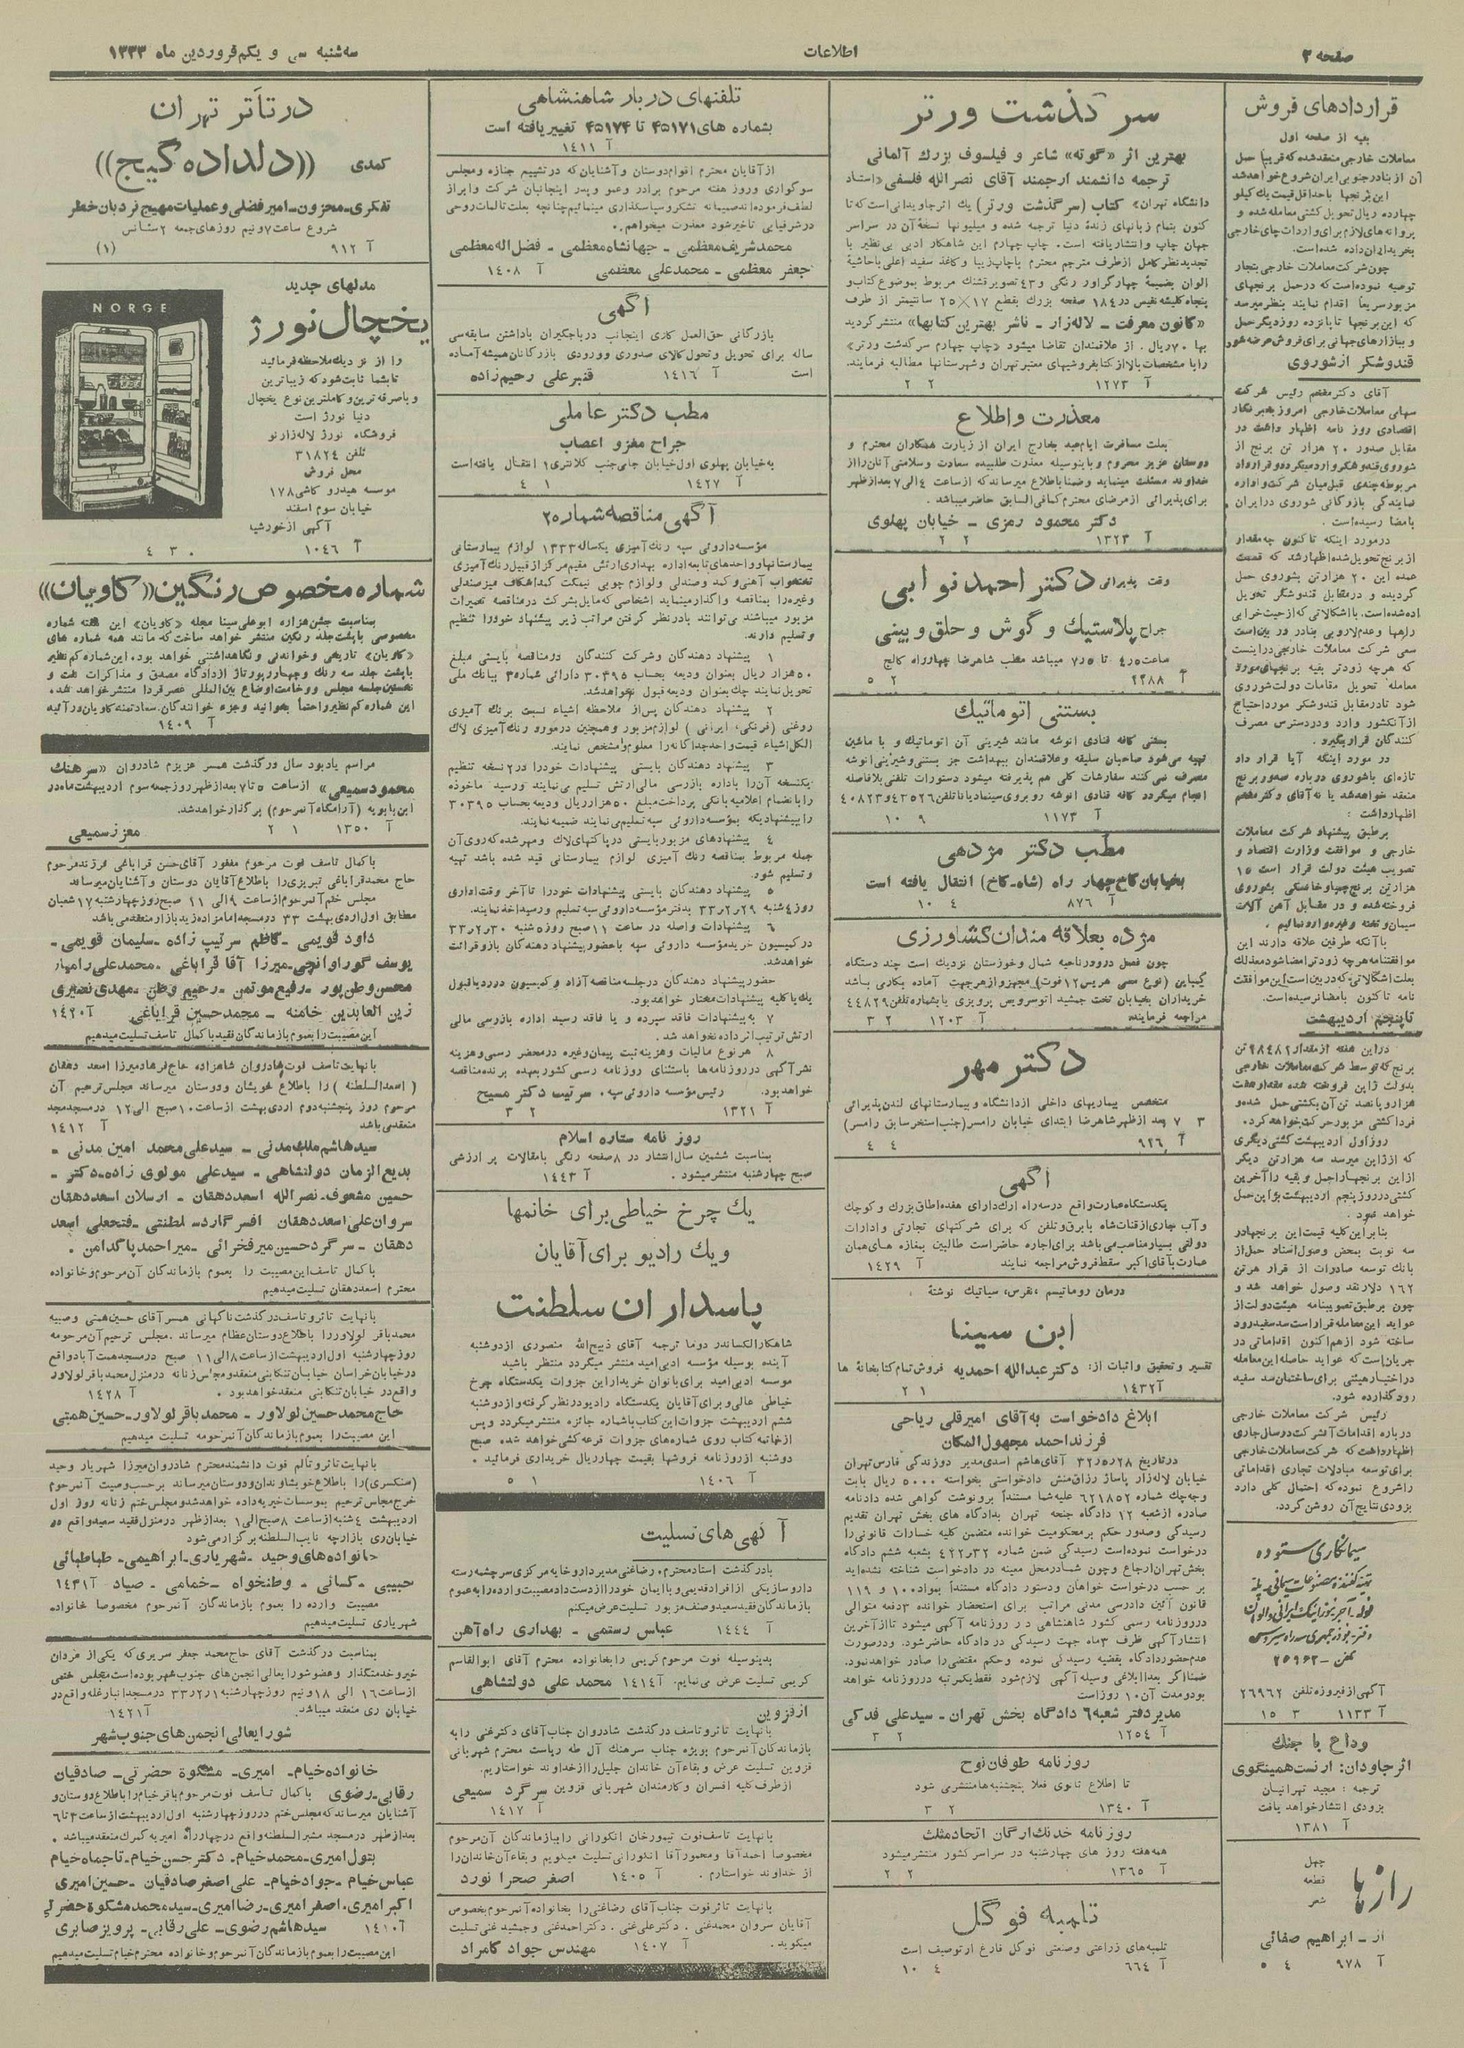 صفحه ۲
اطلاعات
سه‌شنبه سی و یکم فروردین ماه ۱۳۳۳
قراردادهای فروش
بقیه از صفحه اول
معاملات خارجی منعقد شده که قریباً حمل
آن از بنادر جنوبی ایران شروع خواهد شد
چهارده ریال تحویل کشتی معامله شده و
پروانه‌های لازم برای واردات چای خارجی
بخریداران داده شده است.
چون شرکت معاملات خارجی بتجار
توصیه نموده است که در حمل برنجهای
مزبور سریعاً اقدام نمایند بنظر میرسد
که این برنجها تا پانزده روز دیگر حمل
و ببازارهای جهانی برای فروش عرضه شود
قند و شکر از شوروی
سهامی معاملات خارجی امروز به خبرنگار
اقتصادی روز نامه اظهار داشت در
مقابل صدور ۲۰ هزار تن برنج از
نمایندگی بازرگانی شوروی در ایران
بامضا رسیده است.
در مورد اینکه تاکنون چه مقدار
از برنج تحویل شده اظهار شد که قسمت
عمده این ۲۰ هزار تن بشوروی حمل
گردیده و در مقابل قند و شکر تحویل
سعی شرکت معاملات خارجی در اینست
که هرچه زودتر بقیه برنجهای مورد
معامله تحویل مقامات دولت شوروی
شود تا در مقابل قند و شکر مورد احتیاج
از آن کشور وارد و در دسترس مصرف
کنندگان قرار بگیرد.
در مورد اینکه آیا قرار داد
تازه‌ای با شوروی درباره صدور برنج
منعقد خواهد شد یا نه آقای دکتر مقدم
اظهار داشت:
برطبق پیشنهاد شرکت معاملات
خارجی و موافقت وزارت اقتصاد و
تصویب هیئت دولت قرار است ۱۵
فروخته شده و در مقابل آهن آلات
سیمان و تخته و غیره وارد نمائیم.
با آنکه طرفین علاقه دارند این
موافقتنامه هرچه زودتر امضا شود معذلک
نامه تاکنون بامضا نرسیده است.
تا پنجم اردیبهشت
برنج که توسط شرکت معاملات خارجی
بدولت ژاپن فروخته شده مقدار هفت
هزار و پانصد تن آن بکشتی حمل شده و
فردا کشتی مزبور حرکت خواهد کرد.
روز اول اردیبهشت کشتی دیگری
که از ژاپن میرسد سه هزار تن دیگر
از این برنجها را حمل و بقیه را آخرین
کشتی در روز پنجم اردیبهشت بژاپن حمل
خواهد نمود.
بنابراین کلیه قیمت این برنجها در
سه نوبت بمحض وصول اسناد حمل از
بانک توسعه صادرات از قرار هر تن
۱۶۲ دلار نقد وصول خواهد شد و
چون برطبق تصویبنامه هیئت دولت از
عواید این معامله قرار است سد سفیدرود
ساخته شود از هم اکنون اقداماتی در
جریان است که عواید حاصله این معامله
در اختیار هیئتی برای ساختمان سد سفید
رود گذارده شود.
رئیس شرکت معاملات خارجی
درباره اقدامات آن شرکت در سال جاری
اظهار داشت که شرکت معاملات خارجی
برای توسعه مبادلات تجاری اقداماتی
را شروع نموده که احتمال کلی دارد
بزودی نتایج آن روشن گردد.
سیمانکاری ستوده
تلفن - ۲۵۹۶۲
آگهی از فیروزه تلفن ۲۶۹۶۲
آ ۱۱۳۳ ۳ ۱۵
وداع با جنگ
اثر جاودان: ارنست همینگوی
ترجمه: مجید تهرانیان
بزودی انتشار خواهد یافت
آ ۱۳۸۱
رازها
چهل
قطعه
شعر
از - ابراهیم صفائی
آ ۹۷۸ ۴ ۵
سرگذشت ورتر
بهترین اثر «گوته» شاعر و فیلسوف بزرگ آلمانی
ترجمه دانشمند ارجمند آقای نصرالله فلسفی «استاد
دانشگاه تهران» کتاب (سرگذشت ورتر) یک اثر جاویدانی است که تا
کنون بتمام زبانهای زندهٔ دنیا ترجمه شده و میلیونها نسخهٔ آن در سراسر
جهان چاپ و انتشار یافته است. چاپ چهارم این شاهکار ادبی بی‌نظیر با
تجدید نظر کامل از طرف مترجم محترم با چاپ زیبا و کاغذ سفید اعلی با حاشیهٔ
الوان بضمیمهٔ چهار گراور رنگی و ۴۳ تصویر قشنگ مربوط بموضوع کتاب و
پنجاه کلیشه نفیس در ۱۸۴ صفحه بزرگ بقطع ۱۷×۲۵ سانتیمتر از طرف
«کانون معرفت - لاله‌زار - ناشر بهترین کتابها» منتشر گردید
بها ۷۰ ریال. از علاقمندان تقاضا میشود «چاپ چهارم سرگذشت ورتر»
را با مشخصات بالا از کتابفروشیهای معتبر تهران و شهرستانها مطالبه فرمایند.
آ ۱۲۷۳ ۲ ۲
معذرت و اطلاع
بعلت مسافرت ایام عید بخارج ایران از زیارت همکاران محترم و
دوستان عزیز محروم و باینوسیله معذرت طلبیده سعادت و سلامتی آنان را از
خداوند مسئلت مینماید و ضمنا باطلاع میرساند که از ساعت ۴ الی ۷ بعد از ظهر
برای پذیرائی از مرضای محترم کمافی السابق حاضر میباشد.
دکتر محمود رمزی - خیابان پهلوی
آ ۱۳۲۳ ۲ ۲
وقت پذیرائی دکتر احمد نوابی
جراح پلاستیک و گوش و حلق و بینی
ساعت ۴٫۵ تا ۷٫۵ میباشد مطب شاهرضا چهارراه کالج
آ ۲۴۸۸ ۲ ۵
بستنی اتوماتیک
بستنی کافه قنادی انوشه مانند شیرینی آن اتوماتیک و با ماشین
تهیه می‌شود صاحبان سلیقه و علاقمندان ببهداشت جز بستنی و شیرینی انوشه
مصرف نمی‌کنند سفارشات کلی هم پذیرفته میشود دستورات تلفنی بلافاصله
انجام میگردد کافه قنادی انوشه روبروی سینما دیانا تلفن ۴۳۵۲۶ و ۴۰۸۲۳
آ ۱۱۷۳ ۹ ۱۰
مطب دکتر مژدهی
بخیابان کاخ چهار راه (شاه-کاخ) انتقال یافته است
آ ۸۷۶ ۴ ۱۰
مژده بعلاقه مندان کشاورزی
چون فصل درو در ناحیه شمال و خوزستان نزدیک است چند دستگاه
کمباین (نوع مسی هریس ۱۲ فوت) مجهز و از هر جهت آماده بکاری باشد
خریداران بخیابان تخت جمشید اتوسرویس پرویزی یا بشماره تلفن ۴۴۸۲۹
مراجعه فرمایند آ ۱۲۰۳ ۲ ۳
دکتر مهر
متخصص بیماریهای داخلی از دانشگاه و بیمارستانهای لندن پذیرائی
۳ ۷ بعد از ظهر شاهرضا ابتدای خیابان رامسر (جنب استخر سابق رامسر)
آ ۹۲۶ ۴ ۴
آگهی
یکدستگاه عمارت واقع در سه راه ارک دارای هفده اطاق بزرگ و کوچک
و آب جاری از قنات شاه با برق و تلفن که برای شرکتهای تجارتی و ادارات
دولتی بسیار مناسب می‌باشد برای اجاره حاضر است طالبین بمغازه های همان
عمارت با آقای اکبر سقط فروش مراجعه نمایند آ ۱۴۲۹
درمان روماتیسم، نقرس، سیاتیک نوشتهٔ
ابن سینا
تفسیر و تحقیق و اثبات از: دکتر عبدالله احمدیه فروش تمام کتابخانهٔ ها
آ ۱۴۳۲ ۱ ۲
ابلاغ دادخواست به آقای امیرقلی ریاحی
فرزند احمد مجهول المکان
در تاریخ ۳۲٫۵٫۲۸ آقای هاشم اسدی مدیر دوزندگی فارس تهران
خیابان لاله‌زار پاساژ رزاق منش دادخواستی بخواسته ۵۰۰۰ ریال بابت
وجه چک شماره ۶۲۱۸۵۲ علیه شما مستنداً برونوشت گواهی شده دادنامه
صادره از شعبه ۱۲ دادگاه جنحه تهران بدادگاه های بخش تهران تقدیم
رسیدگی و صدور حکم بر محکومیت خوانده متضمن کلیه خسارات قانونی را
درخواست نموده است رسیدگی ضمن شماره ۴۲۲٫۳۲ بشعبه ششم دادگاه
بخش تهران ارجاع و چون شما در محل معینه در دادخواست شناخته نشده‌اید
بر حسب درخواست خواهان و دستور دادگاه مستنداً بمواد ۱۰۰ و ۱۱۹
قانون آئین دادرسی مدنی مراتب برای استحضار خوانده ۳ دفعه متوالی
در روزنامه رسمی کشور شاهنشاهی و در روزنامه آگهی میشود تا از آخرین
انتشار آگهی ظرف ۳ ماه جهت رسیدگی در دادگاه حاضر شود. و در صورت
عدم حضور دادگاه بقضیه رسیدگی نموده و حکم مقتضی را صادر خواهد نمود.
ضمنا اگر بعداً ابلاغی وسیله آگهی لازم شود فقط یکمرتبه در روزنامه خواهد
بود و مدت آن ۱۰ روز است
مدیر دفتر شعبه ۶ دادگاه بخش تهران - سید علی فدکی
آ ۱۲۵۴ ۲ ۳
روزنامه طوفان نوح
تا اطلاع ثانوی فعلا پنجشنبه‌ها منتشر می شود
آ ۱۳۴۰ ۲ ۳
روزنامه خدنگ ارگان اتحاد مثلث
همه هفته روز های چهارشنبه در سراسر کشور منتشر میشود
آ ۱۳۶۵ ۲ ۲
تلمبه فوگل
تلمبه‌های زراعتی و صنعتی فوگل فارغ از توصیف است
آ ۶۶۴ ۴ ۱۰
تلفنهای دربار شاهنشاهی
بشماره های ۴۵۱۷۱ تا ۴۵۱۷۴ تغییر یافته است
آ ۱۴۱۱
از آقایان محترم اقوام دوستان و آشنایان که در تشییع جنازه و مجلس
سوگواری و روز هفته مرحوم برادر و عمو و پدر اینجانبان شرکت و ابراز
لطف فرموده‌اند صمیمانه تشکر و سپاسگذاری مینمائیم چنانچه بعلت تالمات روحی
در شرفیابی تاخیر شود معذرت میخواهم.
محمد شریف معظمی - جهانشاه معظمی - فضل اله معظمی
جعفر معظمی - محمد علی معظمی آ ۱۴۰۸
آگهی
بازرگانی حق العمل کاری اینجانب در باجگیران با داشتن سابقه سی
ساله برای تحویل و تحول کالای صدوری و ورودی بازرگانان همیشه آماده
است آ ۱۴۱۶ قنبر علی رحیم زاده
مطب دکتر عاملی
جراح مغز و اعصاب
به خیابان پهلوی اول خیابان جامی جنب کلانتری ۱ انتقال یافته است
آ ۱۴۲۷ ۱ ۴
آگهی مناقصه شماره ۲۵
مؤسسه داروئی سپه رنگ آمیزی یکساله ۱۳۳۳ لوازم بیمارستانی
بیمارستانها و واحدهای تابعه اداره بهداری ارتش مقیم مرکز از قبیل رنگ آمیزی
تختخواب آهنی و کمد و صندلی و لوازم چوبی نیمکت کمد اشکاف میز صندلی
وغیره را بمناقصه واگذار مینماید اشخاصی که مایل بشرکت در مناقصه تعمیرات
مزبور میباشند می‌توانند با در نظر گرفتن مراتب زیر پیشنهاد خود را تنظیم
و تسلیم دارند.
۱ پیشنهاد دهندگان و شرکت کنندگان در مناقصه بایستی مبلغ
۵۰ هزار ریال بعنوان ودیعه بحساب ۳۰۳۹۵ دارائی شماره ۳ ببانک ملی
تحویل نمایند چک بعنوان ودیعه قبول نخواهد شد.
۲ پیشنهاد دهندگان پس از ملاحظه اشیاء نسبت برنگ آمیزی
روغنی (فرنگی، ایرانی) لوازم مزبور و همچنین در مورد رنگ آمیزی لاک
الکل اشیاء قیمت واحد جداگانه را معلوم و مشخص نمایند.
۳ پیشنهاد دهندگان بایستی پیشنهادات خود را در ۲ نسخه تنظیم
یک نسخه آن را باداره بازرسی مالی ارتش تسلیم می نمایند و رسید ماخوذه
را بانضمام اعلامیه بانکی پرداخت مبلغ ۵۰ هزار ریال ودیعه بحساب ۳۰۳۹۵
را بپیشنهادیکه بمؤسسه داروئی سپه تسلیم می‌نمایند ضمیمه نمایند.
۴ پیشنهادهای مزبور بایستی در پاکتهای لاک و مهر شده که روی آن
جمله مربوط بمناقصه رنگ آمیزی لوازم بیمارستانی قید شده باشد تهیه
و تسلیم شود.
۵ پیشنهاد دهندگان بایستی پیشنهادات خود را تا آخر وقت اداری
روز ۴شنبه ۳۳٫۲٫۲۹ بدفتر مؤسسه داروئی سپه تسلیم و رسید اخذ نمایند.
۶ پیشنهادات واصله در ساعت ۱۱ صبح روز ۵ شنبه ۳۳٫۲٫۳۰
در کمیسیون خرید مؤسسه داروئی سپه با حضور پیشنهاد دهندگان باز و قرائت
خواهد شد.
حضور پیشنهاد دهندگان در جلسه مناقصه آزاد و کمیسیون در رد یا قبول
یک یا کلیه پیشنهادات مختار خواهد بود.
۷ به پیشنهادات فاقد سپرده و یا فاقد رسید اداره بازرسی مالی
ارتش ترتیب اثر داده نخواهد شد.
۸ هر نوع مالیات و هزینه ثبت پیمان وغیره در محضر رسمی و هزینه
نشر آگهی در روزنامه‌ها باستثنای روزنامه رسمی کشور بعهده برنده مناقصه
خواهد بود. رئیس مؤسسه داروئی سپه. سرتیپ دکتر مسیح
آ ۱۳۲۱ ۲ ۳
روز نامه ستاره اسلام
بمناسبت ششمین سال انتشار در ۸ صفحه رنگی با مقالات پر ارزشی
صبح چهارشنبه منتشر میشود. آ ۱۴۴۳
یک چرخ خیاطی برای خانمها
و یک رادیو برای آقایان
پاسداران سلطنت
شاهکار الکساندر دوما ترجمه آقای ذبیح‌الله منصوری از دوشنبه
آینده بوسیله مؤسسه ادبی امید منتشر میگردد منتظر باشید
موسسه ادبی امید برای بانوان خریدار این جزوات یکدستگاه چرخ
خیاطی عالی و برای آقایان یکدستگاه رادیو در نظر گرفته و از دوشنبه
ششم اردیبهشت جزوات این کتاب با شماره جائزه منتشر میگردد و پس
از خاتمه کتاب روی شماره‌های جزوات قرعه کشی خواهد شد. صبح
دوشنبه از روزنامه فروشها بقیمت چهار ریال خریداری فرمائید.
آ ۱۴۰۶ ۱ ۵
آگهی های تسلیت
با درگذشت استاد محترم، رضا غنی مدیر داروخانه مرکزی سرچشمه رسته
داروسازیکی از افراد قدیمی و با ایمان خود را از دست داد مصیبت وارده را به عموم
بازماندگان فقید سعید و صنف مزبور تسلیت عرض میکنم
آ ۱۴۴۴ عباس رستمی - بهداری راه آهن
بدینوسیله فوت مرحوم کریمی را بخانواده محترم آقای ابوالقاسم
کریمی تسلیت عرض می‌نمایم. آ ۱۴۱۴ محمد علی دولتشاهی
از قزوین
با نهایت تاثر و تاسف درگذشت شادروان جناب آقای دکتر غنی را به
بازماندگان آنمرحوم بویژه جناب سرهنگ آل طه ریاست محترم شهربانی
قزوین تسلیت عرض و بقاء آن خاندان جلیل را از خداوند خواستاریم.
از طرف کلیه افسران و کارمندان شهربانی قزوین سرگرد سمیعی
آ ۱۴۱۷
با نهایت تاسف فوت تیمورخان انکورانی را ببازماندگان آن مرحوم
مخصوصا احمد آقا و محمود آقا انکورانی تسلیت میگویم و بقاء آن خاندان را
از خداوند خواستارم. آ ۱۴۰۵ اصغر صحرا نورد
با نهایت تاثر فوت جناب آقای رضا غنی را بخانواده آنمرحوم بخصوص
آقایان سروان محمد غنی. دکتر علی غنی. دکتر احمد غنی و جمشید غنی تسلیت
میگوید. آ ۱۴۰۷ مهندس جواد کامراد
در تآتر تهران
کمدی ((دلداده گیج))
تفکری-محزون-امیر فضلی و عملیات مهیج نردبان خطر
شروع ساعت ۷ و نیم روزهای جمعه ۲ سئانس
آ ۹۱۲ (۱)
مدلهای جدید
یخچال نورژ
NORGE
را از نزدیک ملاحظه فرمائید
تا بشما ثابت شود که زیباترین
و با صرفه‌ترین و کاملترین نوع یخچال
دنیا نورژ است
فروشگاه نورژ لاله زار نو
تلفن ۳۱۸۲۴
محل فروش
موسسه هیدرو کاشی ۱۷۸
خیابان سوم اسفند
آگهی از خورشید
آ ۱۰۴۶ ۳۰ ۴
شماره مخصوص رنگین ((کاویان))
بمناسبت جشن هزاره ابوعلی سینا مجله «کاویان» این هفته شماره
مخصوصی با پشت جلد رنگین منتشر خواهد ساخت که مانند همه شماره های
«کاویان» تاریخی و خواندنی و نگاهداشتنی خواهد بود. این شماره کم نظیر
با پشت جلد سه رنگ و چهار رپورتاژ از دادگاه مصدق و مذاکرات نفت و
نخستین جلسه مجلس و وخامت اوضاع بین‌المللی عصر فردا منتشر خواهد شد.
این شماره کم نظیر را حتماً بخوانید و جزء خوانندگان سعادتمند کاویان در آئید
آ ۱۴۰۹
مراسم یادبود سال درگذشت همسر عزیزم شادروان «سرهنگ
محمود سمیعی» از ساعت ۵ تا ۷ بعد از ظهر روز جمعه سوم اردیبهشت ماه در
ابن بابویه (آرامگاه آنمرحوم) برگزار خواهد شد.
آ ۱۳۵۰ ۱ ۲ معزز سمیعی
با کمال تاسف فوت مرحوم مغفور آقای حسن قراباغی فرزند مرحوم
حاج محمد قراباغی تبریزی را باطلاع آقایان دوستان و آشنایان میرساند
مجلس ختم آنمرحوم از ساعت ۹ الی ۱۱ صبح روز چهارشنبه ۱۷ شعبان
مطابق اول اردی بهشت ۳۳ در مسجد امامزاده زید بازار منعقد می باشد
داود قویمی - کاظم سرتیپ زاده - سلیمان قویمی -
یوسف گوراوانچی - میرزا آقا قراباغی - محمد علی رامیار
محسن وطن‌پور - رفیع موتمن - رحیم وطن - مهدی نصیری
زین العابدین خامنه - محمد حسین قراباغی آ ۱۴۲۰
این مصیبت را بعموم بازماندگان فقید با کمال تاسف تسلیت میدهیم
بانهایت تاسف فوت شادروان شاهزاده حاج فرهاد میرزا اسعد دهقان
(اسعد السلطنه) را باطلاع خویشان و دوستان میرساند مجلس ترحیم آن
مرحوم روز پنجشنبه دوم اردی بهشت از ساعت ۱۰ صبح الی ۱۲ در مسجد مجد
منعقد می باشد آ ۱۴۱۲
سید هاشم ملک مدنی - سید علی محمد امین مدنی -
بدیع الزمان دولتشاهی - سید علی مولوی زاده - دکتر -
حسین مشعوف - نصرالله اسعد دهقان - ارسلان اسعد دهقان
سروان علی اسعد دهقان افسر گارد سلطنتی - فتحعلی اسعد
دهقان - سرگرد حسین میرفخرائی - میر احمد پاکدامن.
با کمال تاسف این مصیبت را بعموم بازماندگان آن مرحوم و خانواده
محترم اسعد دهقان تسلیت میدهیم
با نهایت تاثر و تاسف درگذشت ناگهانی همسر آقای حسین همتی و صبیه
محمد باقر لولاور را باطلاع دوستان عظام میرساند. مجلس ترحیم آن مرحومه
روز چهارشنبه اول اردیبهشت از ساعت ۸ الی ۱۱ صبح در مسجد همت آباد واقع
در خیابان خراسان خیابان تنکابنی منعقد و مجلس زنانه در منزل محمد باقر لولاور
واقع در خیابان تنکابنی منعقد خواهد بود. آ ۱۴۲۸
حاج محمد حسین لولاور - محمد باقر لولاور - حسین همتی
این مصیبت را بعموم بازماندگان آنمرحومه تسلیت میدهیم
با نهایت تاثر و تألم فوت دانشمند محترم شادروان میرزا شهریار وحید
(سنکسری) را باطلاع خویشاوندان و دوستان میرساند بر حسب وصیت آنمرحوم
خرج مجالس ترحیم بموسسات خیریه داده خواهد شد و مجلس ختم زنانه روز اول
اردیبهشت ۴شنبه از ساعت ۸ صبح الی ۱ بعد از ظهر در منزل فقید سعید واقع در
خیابان ری بازارچه نایب السلطنه برگزار می شود
خانواده های وحید - شهریاری - ابراهیمی - طباطبائی
حبیبی - کمائی - وطنخواه - خمامی - صیاد آ ۱۴۳۱
مصیبت وارده را بعموم بازماندگان آنمرحوم مخصوصا خانواده
شهریاری تسلیت میدهیم
بمناسبت درگذشت آقای حاج محمد جعفر سریری که یکی از مردان
خیر و خدمتگذار و عضو شورایعالی انجمن های جنوب شهر بوده است مجلس ختمی
از ساعت ۱۶ الی ۱۸ و نیم روز چهارشنبه ۳۳٫۲٫۱ در مسجد انبار غله واقع در
خیابان ری منعقد میباشد. آ ۱۴۲۱
شورایعالی انجمن های جنوب شهر
خانواده خیام - امیری - مشکوة حضرتی - صادقیان
رقابی - رضوی با کمال تاسف فوت مرحوم باقر خیام را باطلاع دوستان و
آشنایان میرساند که مجلس ختم در روز چهارشنبه اول اردیبهشت از ساعت ۴ تا ۶
بعد از ظهر در مسجد مشیر السلطنه واقع در چهار راه امیریه گمرک منعقد میباشد.
بتول امیری - محمد خیام - دکتر حسن خیام - تاجماه خیام
عباس خیام - جواد خیام - علی اصغر صادقیان - حسین امیری
اکبر امیری - اصغر امیری - رضا امیری - سید محمد مشکوة حضرتی
آ ۱۴۱۰ سید هاشم رضوی - علی رقابی - پرویز صابری
این مصیبت را بعموم بازماندگان آنمرحوم و خانواده محترم خیام تسلیت میدهیم